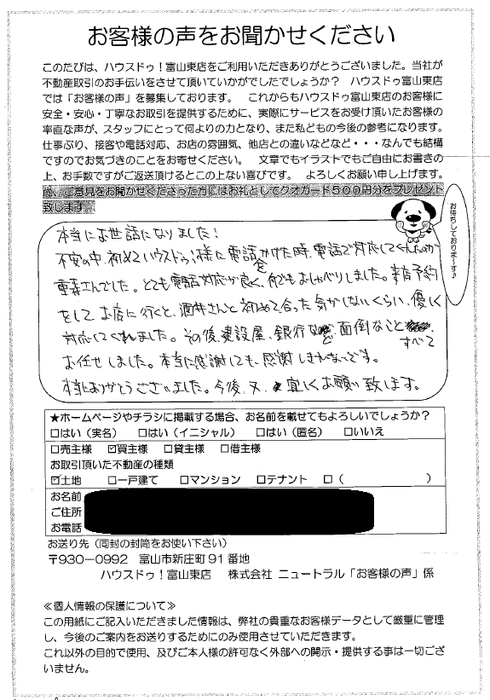 お客様の声をお聞かせください
このたびは、ハウスドゥ！富山東店をご利用いただきありがとうございました。当社が
不動産取引のお手伝いをさせて頂いていかがでしたでしょうか？　ハウスドゥ富山東店
では「お客様の声」を募集しております。　これからもハウスドゥ富山東店のお客様に
安全・安心・丁寧なお取引を提供するために、実際にサービスをお受け頂いたお客様の
率直な声が、スタッフにとって何よりの力となり、また私どもの今後の参考になります。
仕事ぶり、接客や電話対応、お店の雰囲気、他店との違いなどなど・・・なんでも結構
ですのでお気づきのことをお寄せください。　文章でもイラストでもご自由にお書きの
上、お手数ですがご返送頂けるとこの上ない喜びです。　よろしくお願い申し上げます。
尚、ご意見をお聞かせくださった方にはお礼としてクオカード５００円分をプレゼント
致します。
お待ちしておりま～す♪
本当にお世話になりました！
不安の中、初めてハウスドゥ様に電話をかけた時、電話で対応してくれたのが
さんでした。とても電話対応が良く、何でもおしゃべりしました。来店予約
をして、お店に行くと、酒井さんと初めて会った気がしないくらい、優しく
対応してくれました。その後、建設屋、銀行など面倒なことすべて
お任せしました。本当に感謝しても感謝しきれないです。
本当にありがとうございました。今後、又、宜しくお願い致します。
★ホームページやチラシに掲載する場合、お名前を載せてもよろしいでしょうか？
□はい（実名）　□はい（イニシャル）　□はい（匿名）　□いいえ
□売主様　☑買主様　□貸主様　□借主様
お取引頂いた不動産の種類
☑土地　□一戸建て　□マンション　□テナント　□（　　　　）
お名前
ご住所
お電話
お送り先（同封の封筒をお使い下さい）
〒930-0992　富山市新庄町９１番地
ハウスドゥ！富山東店　株式会社 ニュートラル「お客様の声」係
≪個人情報の保護について≫
この用紙にご記入いただきました情報は、弊社の貴重なお客様データとして厳重に管理
し、今後のご案内をお送りするためにのみ使用させていただきます。
これ以外の目的で使用、及びご本人様の許可なく外部への開示・提供する事は一切ござ
いません。